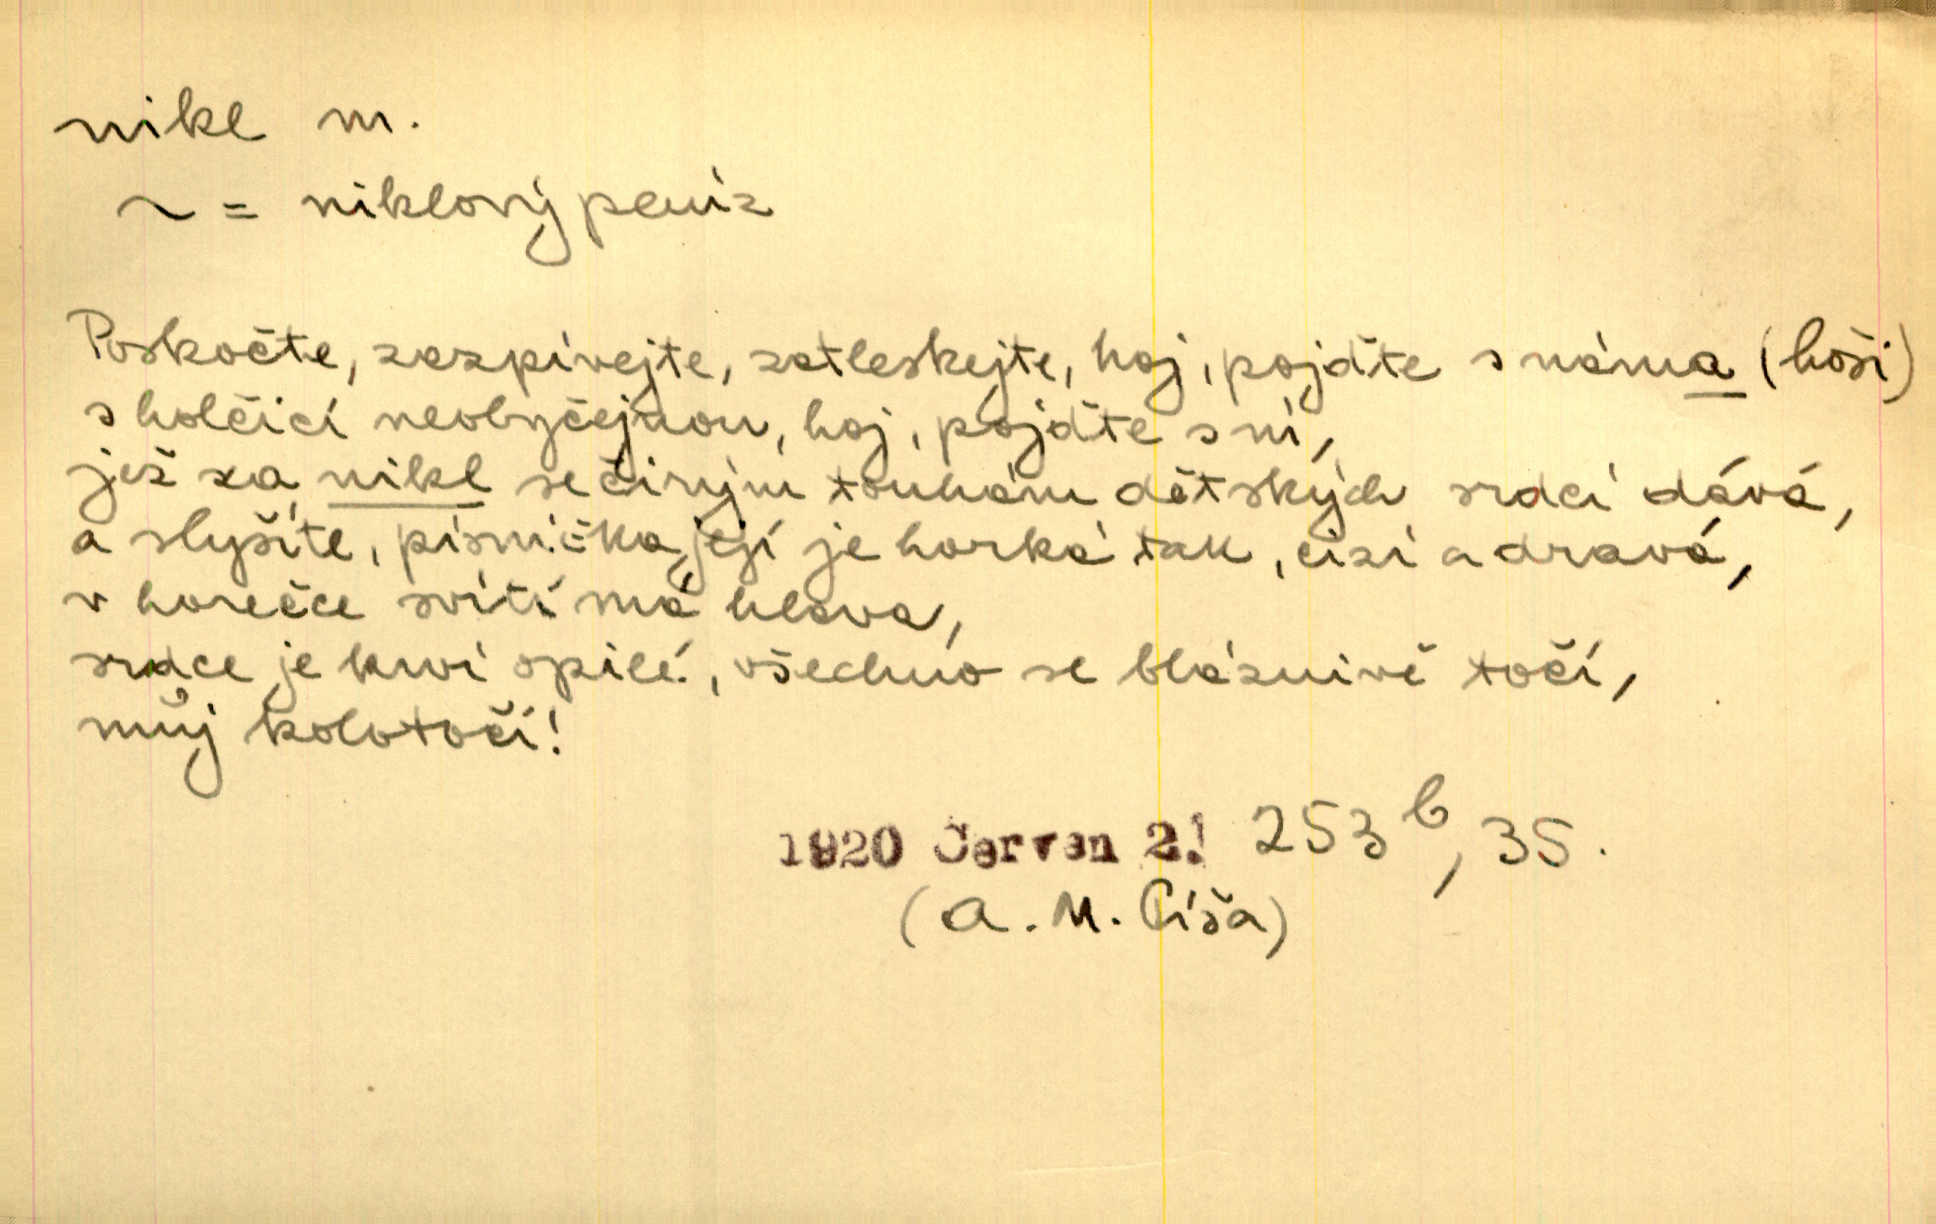 nikl m.
~ = niklový peníz
Poskočte, zazpívejte, zatleskejte, hoj, pojďte s náma (hoši)
s holčicí neobyčejnou, hoj, pojďte s ní,
jež za nikl se čirým touhám dětských srdcí dává,
a slyšíte, písnička její je horká tak, cizí a dravá,
v horečce svítí má hlava,
srdce je krví opilé, všechno se bláznivě točí,
můj kolotočí!
1920 Červen 2! 253b, 35.
(A. M. Píša)